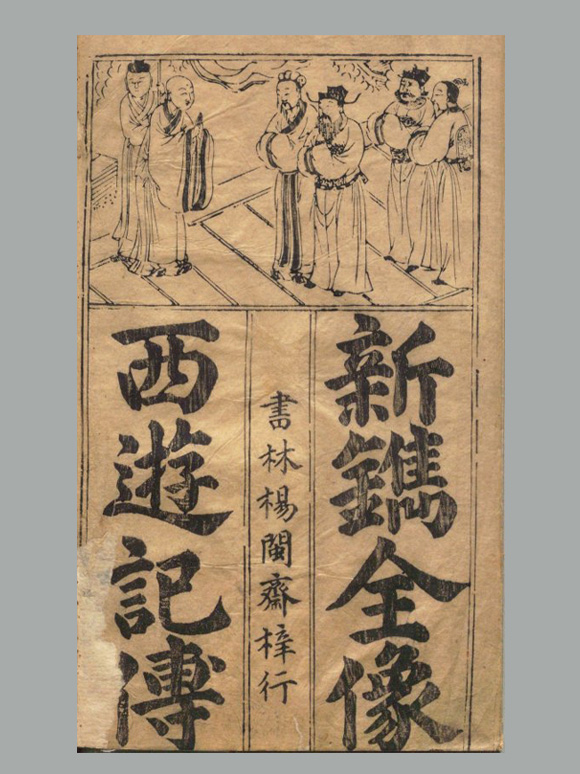 新鐫全像
書林楊閩齋梓行
西遊記傳